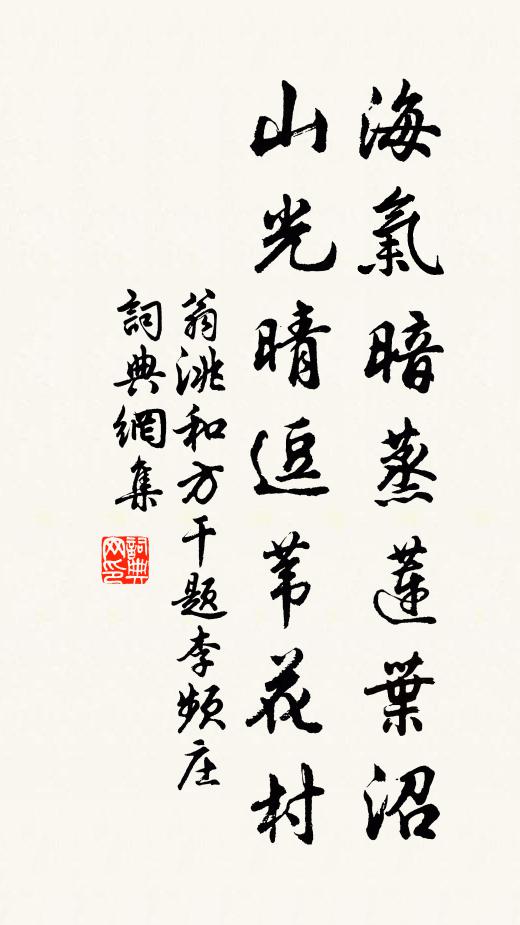 海氣暗蒸蓮葉沼
山光晴逗苇花村
翁洮和方干题李频庄
詞典網集
詞典网印